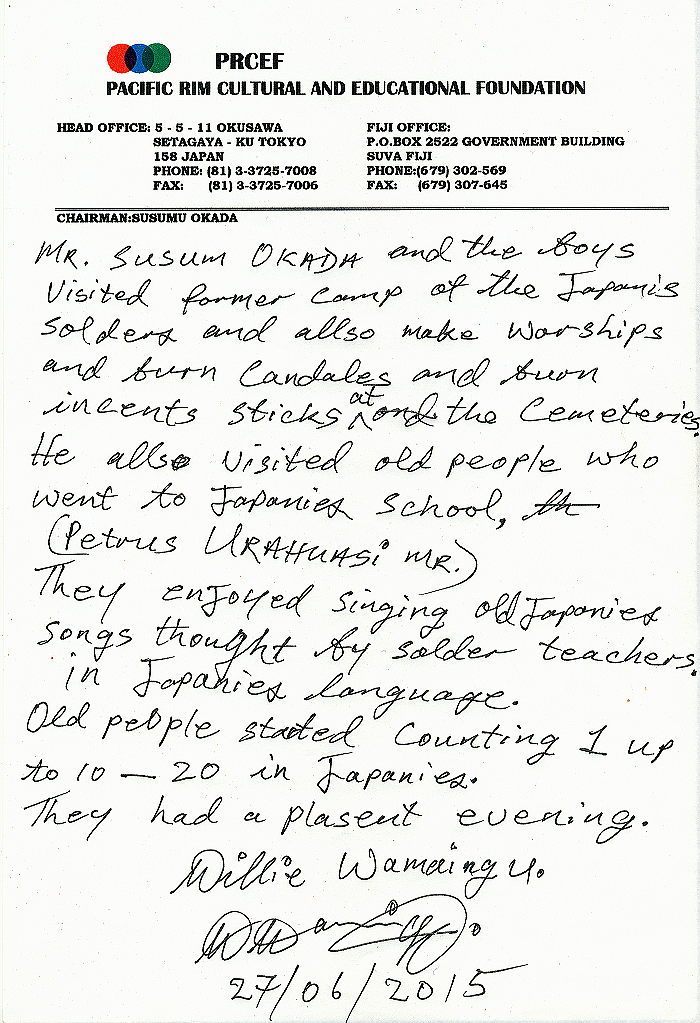 PRCEF
PACIFIC RIM CULTURAL AND EDUCATIONAL FOUNDATION
HEAD OFFICE: 5 - 5 - 11 OKUSAWA
SETAGAYA - KU TOKYO
158 JAPAN
PHONE: (81) 3-3725-7008
FAX: (81) 3-3725-7006
FIJI OFFICE:
P.O.BOX 2522 GOVERNMENT BUILDING
SUVA FIJI
PHONE:(679) 302-569
FAX: (679) 307-645
CHAIRMAN:SUSUMU OKADA
MR. SUSUM OKADA and the boys
Visited former camp of the Japanis
Solders and allso make worships
and burn Candales and burn
incents sticks at the Cemeteries.
He allso visited old people who
went to Japanies School,
(Petrus URAHUASi MR.)
They enjoyed singing old Japanies
songs thought by solder teachers.
in Japanies language.
Old people stated Counting 1 up
to 10 — 20 in Japanies.
They had a plasent evening.
Willie Wamaingu.
27/06/2015